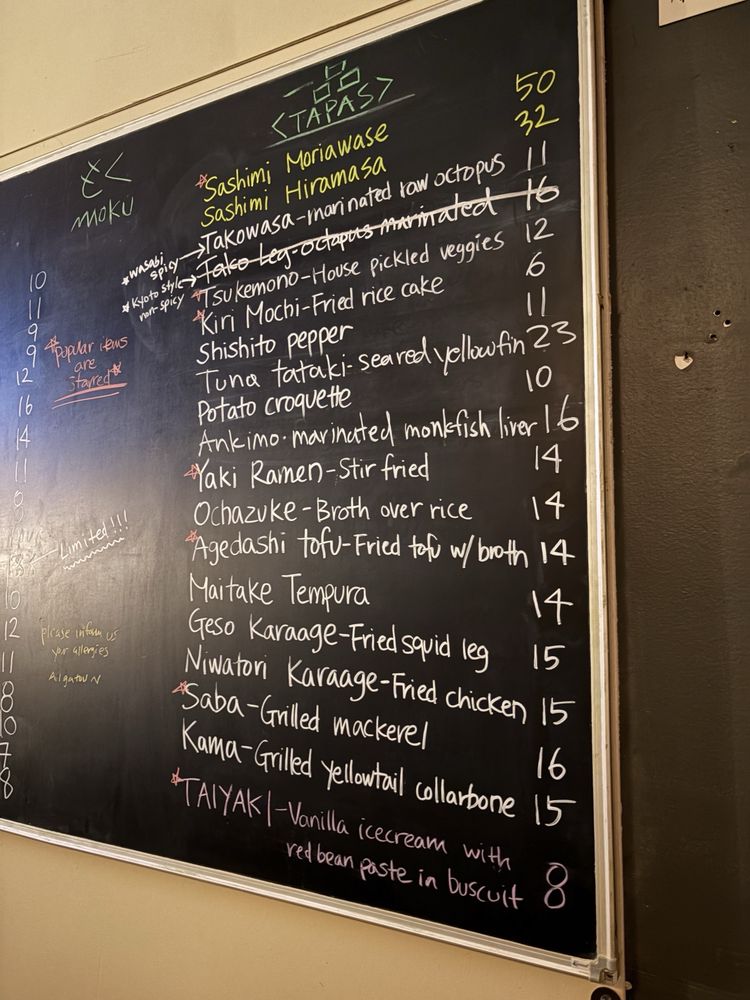 もく
MOKU
10
11
9
9
12
16
14
11
10
12
11
8
10
7
8
*wasabi
spicy
*Kyoto style
non-spicy
*Popular items
are
starred*
Limited!!!
please inform us
your allergies
一品
<TAPAS>
Sashimi Moriawase 50
Sashimi Hiramasa 32
Takowasa-marinated raw octopus 11
Tako Leg-octapus marinated 16
Tsukemono-House pickled veggies 12
Kiri Mochi-Fried rice cake 6
Shishito pepper 11
Tuna tataki-seared yellowfin 23
Potato croquette 10
Ankimo-marinated monkfish liver 16
Yaki Ramen-Stir fried 14
Ochazuke-Broth over rice 14
Agedashi tofu-Fried tofu w/broth 14
Maitake Tempura 14
Geso Karaage-Fried squid leg 15
Niwatori Karaage-Fried chicken 15
Saba-Grilled mackerel 16
Kama-Grilled yellowtail collarbone 15
TAIYAKI-Vanilla icecream with
red bean paste in buscuit 8